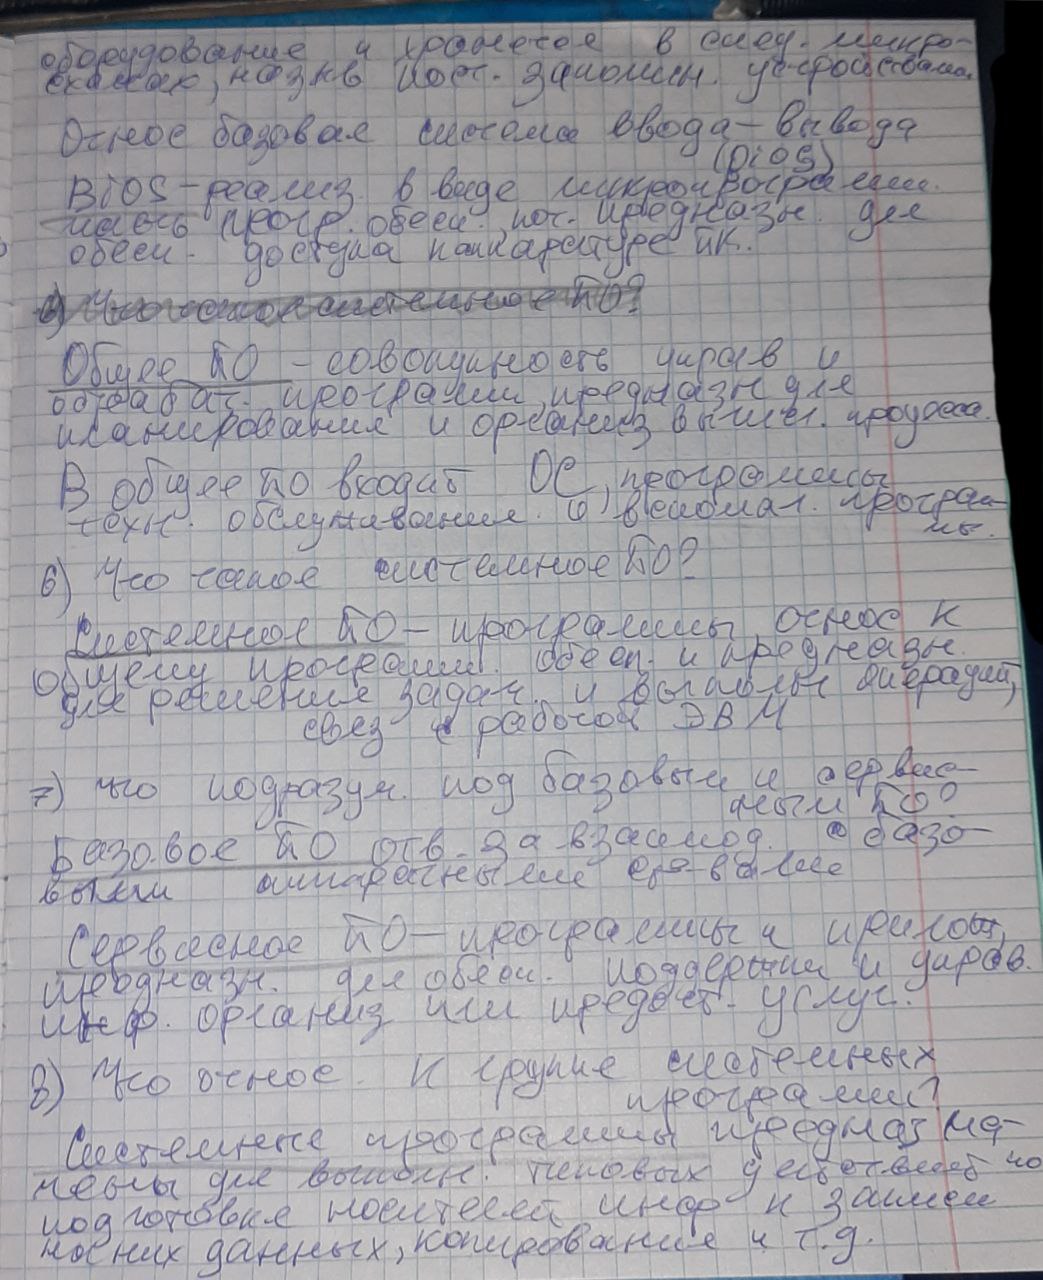 оборудование и хранется в спец. микро-
схемаю, назыв пост. запомин. устройствама.
Относ базовая система ввода-вывода
(BiOS)
BiOS-реализ в виде микропрограмм.
часть прогр. обесп., пос. предназн. для
обесп. доступа к аппаратуре ПК.
6) Что такое системное ПО?
Общее ПО - совокупность управ и
обрабат. программ, предназн для
планирования и организ вычисл. процесса.
В общее ПО входит ОС, программы
техн. обслуживания и вспомаг. програм-
мы.
6) Что такое системное ПО?
Системное ПО - программы относ к
общему программ. обесп. и предназн.
для решения задач и выполн операций,
связ с работой ЭВМ
7) Что подразум. под базовым и сервис-
ным ПО?
Базовое ПО отв. за взаимод. с базо-
выми аппаратными ср-вами
Сервисное ПО - программы и прилож,
предназн. для обесп. поддержки и управ.
инф. организ или предост. услуг.
8) Что относ. к группе системных
программ?
Системные программы предназна-
чены для выполн. типовых действией по
подготовке носителей инф к записи
на них данных, копирование и т.д.